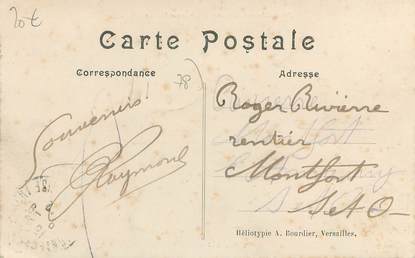 20€
Carte Postale
Correspondance
78
Adresse
Souvenirs!
Raymond
Roger Rivière
rentier
Montfort
S et O
Héliotypie A. Bourdier, Versailles.